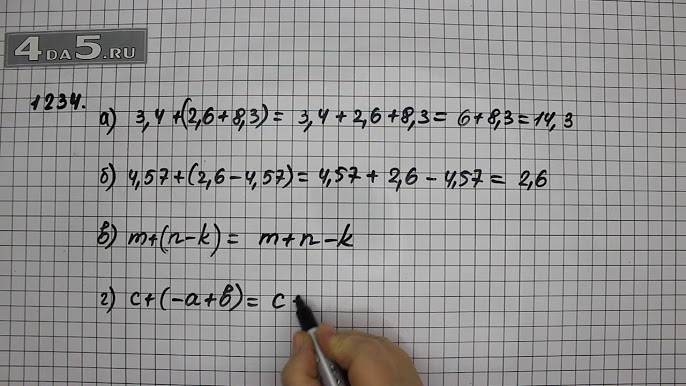 4DA5.RU
1234.
а) 3,4+(2,6+8,3)= 3,4+2,6+8,3= 6+8,3=14,3
б) 4,57+(2,6-4,57)= 4,57+ 2,6-4,57= 2,6
в) m+(n-k)= m+n-k
г) c+(-a+b)= c+